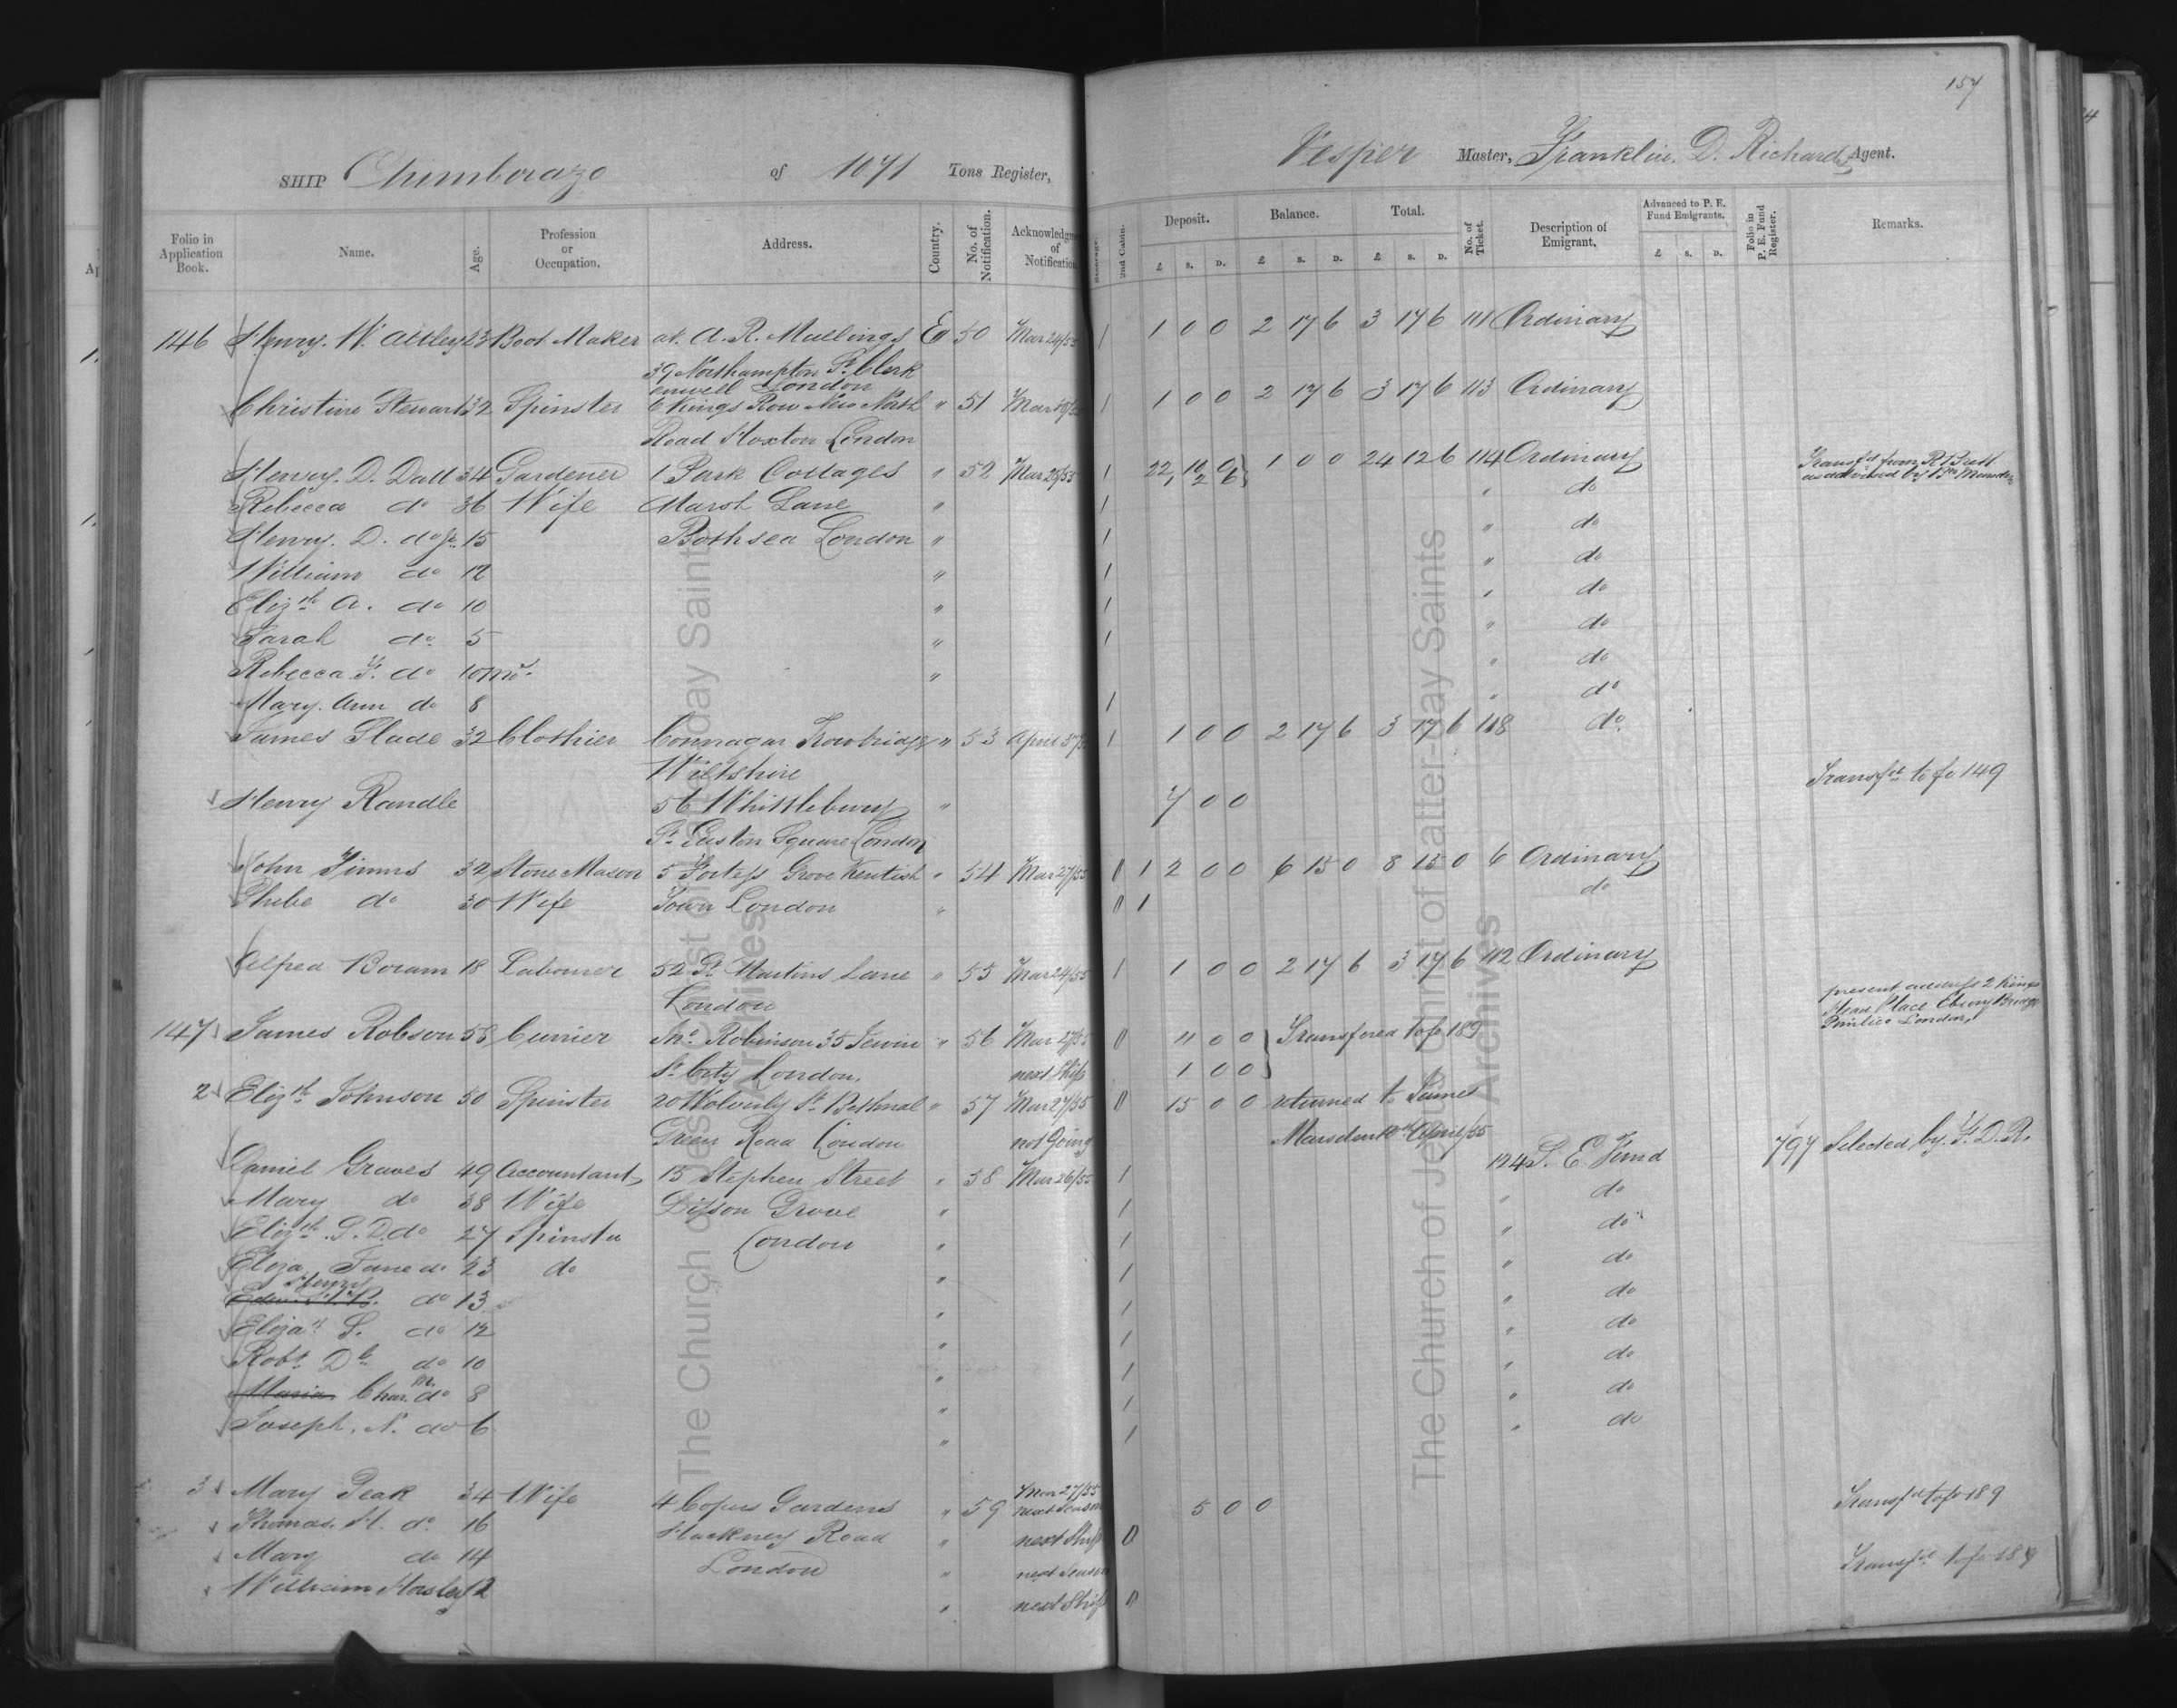 157
SHIP Chimborazo of 1071 Tons Register, Vesper Master, Franklin. D. Richards Agent.
Folio in Application Book. Name. Age. Profession or Occupation. Address. Country. No. of Notification. Acknowledgment of Notification 2nd Cabin. Deposit. Balance. Total. No. of Ticket. Description of Emigrant. Advanced to P. E. Fund Emigrants. Folio in P. E. Fund Register. Remarks.
£ s. D. £ s. D. £ s. D. £ s. D.
146 Henry. W. Attley 23 Boot Maker at A. R. Mullings E 50 Mar 24/55 1 1 0 0 2 17 6 3 17 6 111 Ordinary
39 Northampton St. Clerk
enwell London
Christine Stewart 32 Spinster 6 Kings Row New North " 51 Mar 1 1 0 0 2 17 6 3 17 6 113 Ordinary
Road Hoxton London
Henry. D. Dall 34 Gardener 1 Park Cottages " 52 Mar 26/55 1 22 10 0 1 0 0 24 12 6 114 Ordinary Transfd from
1 2 6
Rebecca do 36 Wife Marsh Lane " 1 " do
Henry. D. do Jr. 15 London " 1 " do
William do 12 " 1 " do
Elizth A. do 10 " 1 " do
Sarah do 5 " 1 " do
Rebecca do 10 mo. " " do
Mary. Ann do 8 1 " do
James Slade 32 Clothier Connagar Trowbridge " 53 April 1 1 0 0 2 17 6 3 17 6 118 do.
Wiltshire
Henry Randle 56 Whittlebury " 7 0 0 Transfd to fo 149
St. Euston Square London
John Timms 32 Stone Mason 5 Fortess Grove Kentish " 54 Mar 27/55 0 1 2 0 0 6 15 0 8 15 0 6 Ordinary
Phebe do 30 Wife Town London " 0 1 do
Alfred Boram 18 Labourer 52 St. Martins Lane " 55 Mar 24/55 1 1 0 0 2 17 6 3 17 6 112 Ordinary
London
present address 2 Kings
Place Ebury Bridge
Pimlico London.
147 James Robson 58 Currier Thos. Robinson 35 Jewin " 56 Mar 27/55 0 11 0 0 Transfered to fo 189
St. City London. next Ship 1 0 0
2 Elizth Johnson 50 Spinster 20 St. Bethnal " 57 Mar 27/55 0 15 0 0 returned to James
Green Road London not Going Marsden April/55
Daniel Graves 49 Accountant 15 Stephen Street " 58 Mar 26/55 1 124 P. E. Fund 797 Selected by. F. D. R.
Mary do 38 Wife Lisson Grove " 1 " do
Elizth. S. D. do 27 Spinster London " 1 " do
Eliza Jane do 23 do " 1 " do
Henry
do 13 " 1 " do
Eliza S. do 12 " 1 " do
Robt. D do 10 " 1 " do
Maria Chas. M. do 8 " 1 " do
Joseph. N. do 6 " 1 " do
3 Mary Peak 34 Wife 4 Copus Gardens " 59 Mar 27/55 5 0 0 Transfd to fo 189
next Season
Thomas. H. do 16 Hackney Road " next Ship 0
Mary do 14 London " next Season Transfd to fo 189
William Horsley 12 " next Ship 0
The Church of Jesus Christ of Latter-day Saints
Archives
The Church of Jesus Christ of Latter-day Saints
Archives